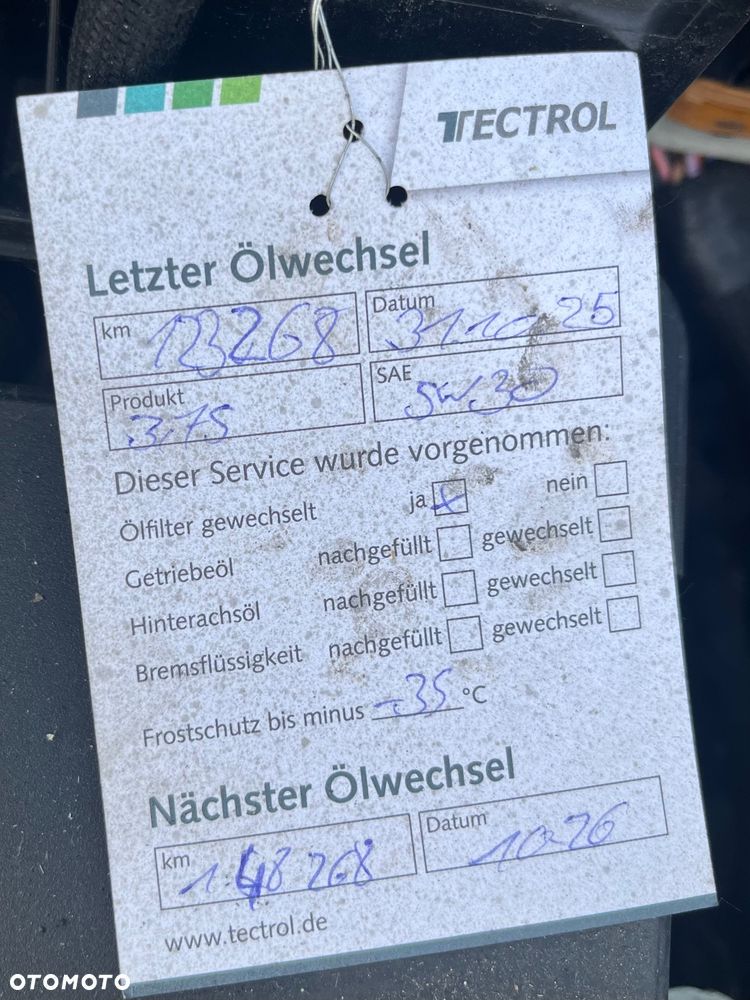 TECTROL
Letzter Ölwechsel
km 123268 Datum 31.10.25
Produkt 375 SAE 5W30
Dieser Service wurde vorgenommen:
Ölfilter gewechselt ja x nein
Getriebeöl nachgefüllt gewechselt
Hinterachsöl nachgefüllt gewechselt
Bremsflüssigkeit nachgefüllt gewechselt
Frostschutz bis minus -35 °C
Nächster Ölwechsel
km 148268 Datum 10-26
www.tectrol.de
OTOMOTO